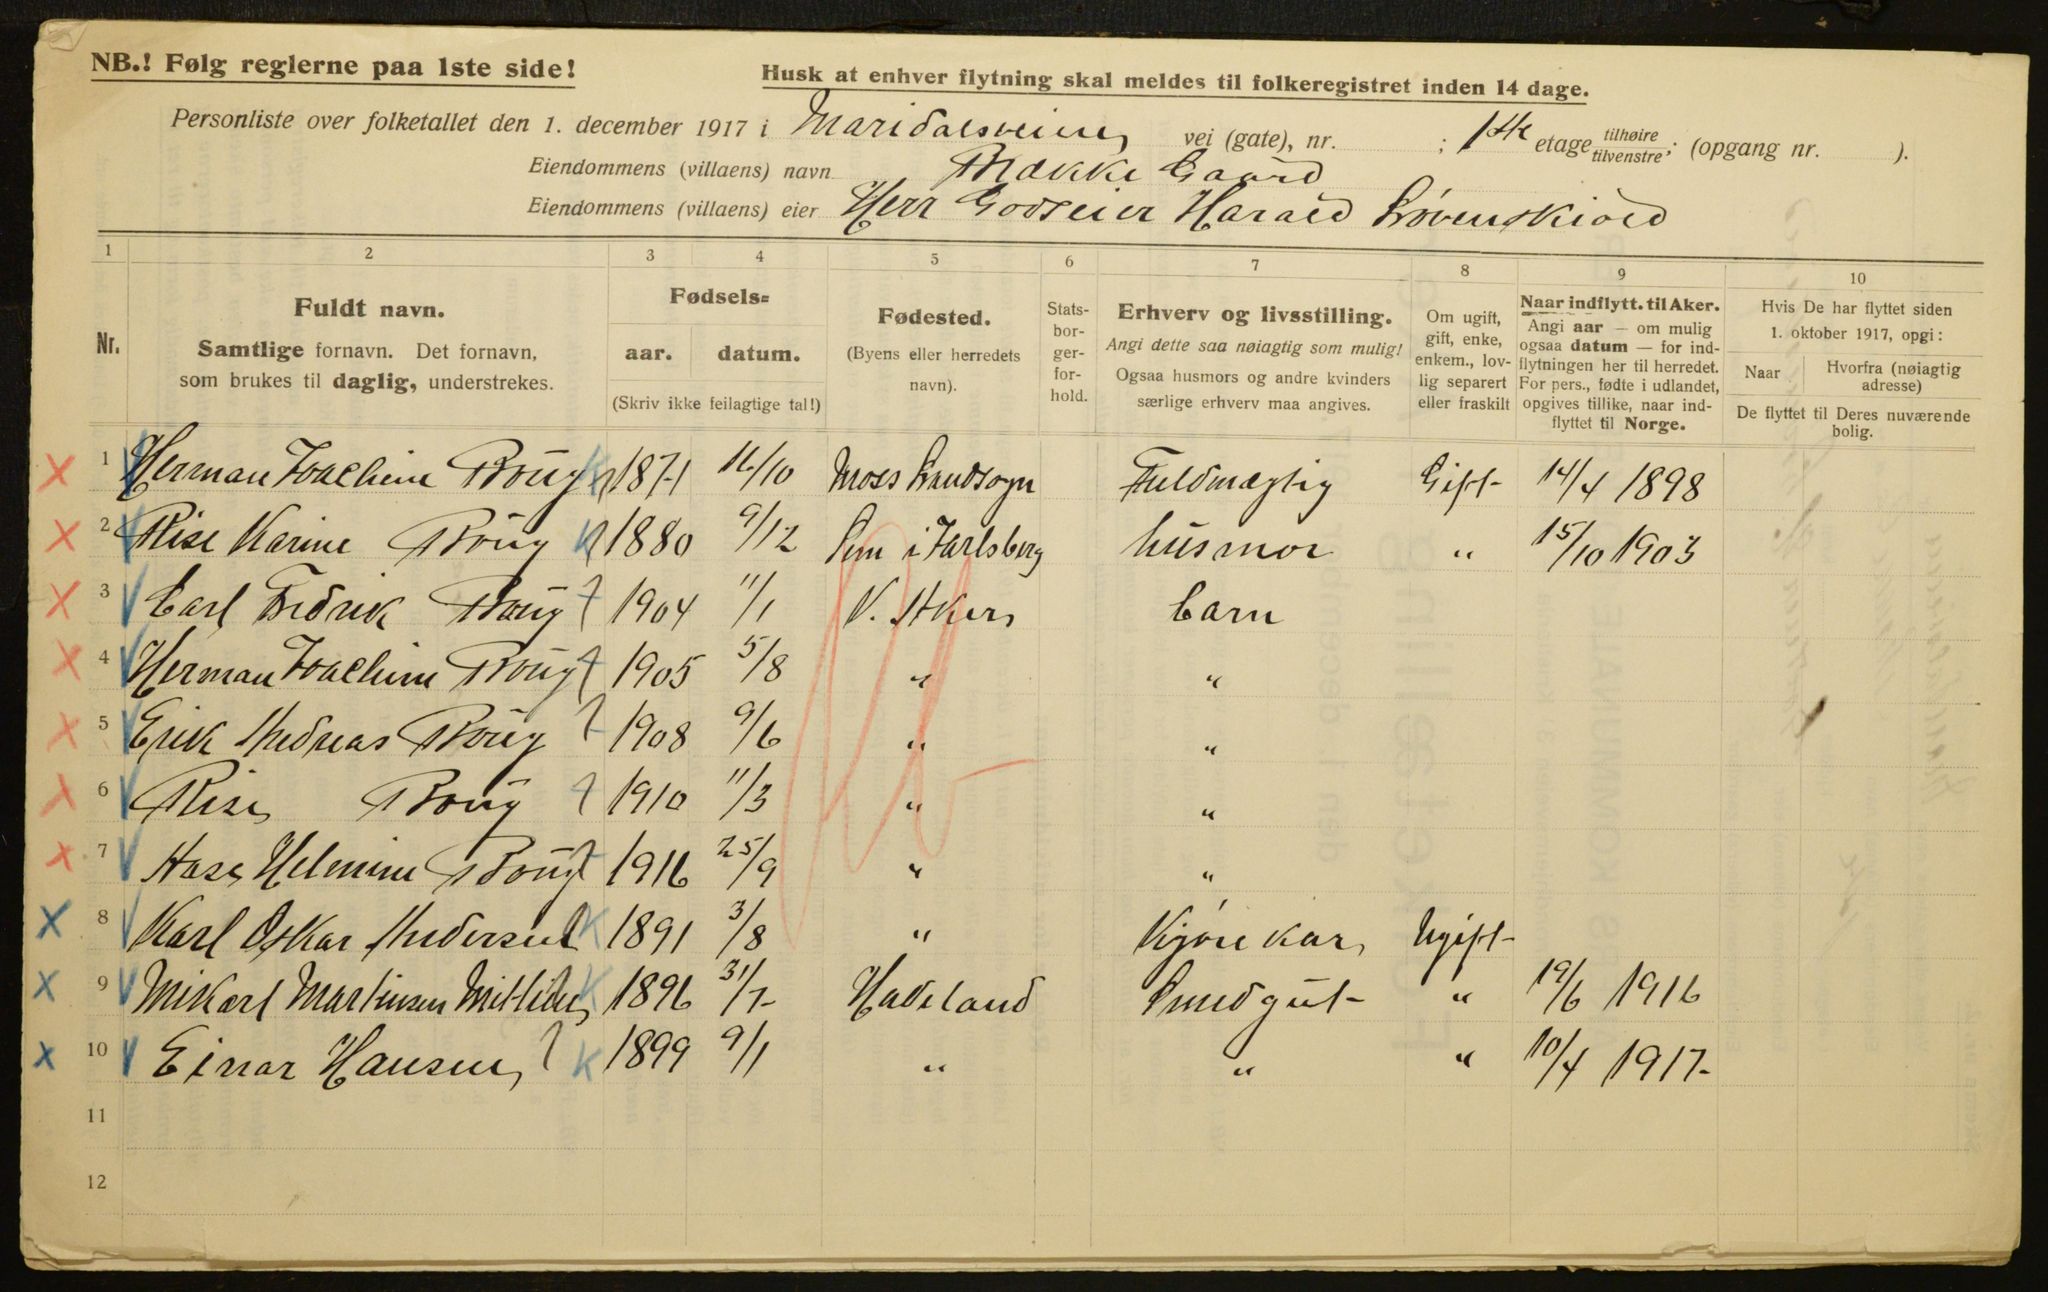 NB.! Følg reglerne paa 1ste side!
Husk at enhver flytning skal meldes til folkeregistret inden 14 dage.
Personliste over folketallet den 1. december 1917 i Maridalsveien vei (gate), nr. ; 1ste etage tilhøire / tilvenstre; (opgang nr. ).
Eiendommens (villaens) navn Brække Gaard
Eiendommens (villaens) eier Herr Godseier Harald Løvenskiold
1 2 3 4 5 6 7 8 9 10
Nr.
Fuldt navn.
Samtlige fornavn. Det fornavn,
som brukes til daglig, understrekes.
Fødsels=
aar. datum.
(Skriv ikke feilagtige tal!)
Fødested.
(Byens eller herredets
navn).
Stats-
bor-
ger-
for-
hold.
Erhverv og livsstilling.
Angi dette saa nøiagtig som mulig!
Ogsaa husmors og andre kvinders
særlige erhverv maa angives.
Om ugift,
gift, enke,
enkem., lov-
lig separert
eller fraskilt
Naar indflytt. til Aker.
Angi aar — om mulig
ogsaa datum — for ind-
flytningen her til herredet.
For pers., fødte i udlandet,
opgives tillike, naar ind-
flyttet til Norge.
Hvis De har flyttet siden
1. oktober 1917, opgi:
Naar Hvorfra (nøiagtig
adresse)
De flyttet til Deres nuværende
bolig.
1 Herman Joachim Boug 1871 16/10 Moss Landsogn Fuldmægtig Gift 14/4 1898
2 Karine Boug 1880 9/12 Sem i Jarlsberg husmor " 15/10 1903
3 Carl Fredrik Boug 1904 11/1 V. Aker barn
4 Herman Joachim Boug 1905 5/8 " "
5 Erik Andreas Boug 1908 9/6 " "
6 Boug 1910 11/3 " "
7 Aase Helmine Boug 1916 25/9 " "
8 Karl Oskar Andersen 1891 3/8 " Kjørekar Ugift
9 Mikael Martinsen 1896 31/7 Hadeland Smedgut " 19/6 1916
10 Einar Hansen 1899 9/1 " " " 10/4 1917
11
12